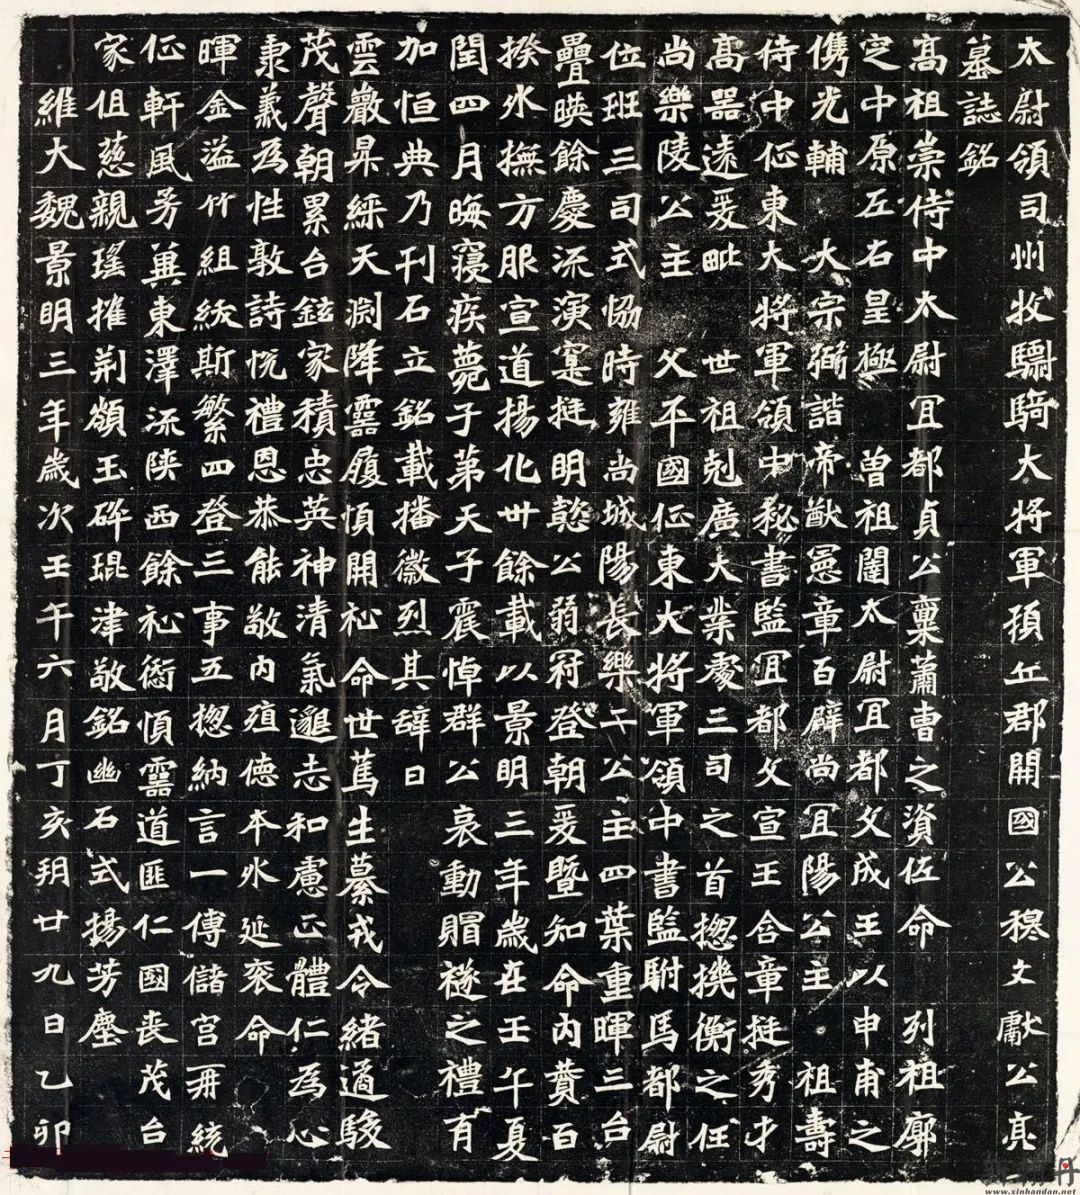 太尉領司州牧驃騎大將軍頓丘郡開國公穆文獻公亮
墓誌銘
高祖崇侍中太尉冝都貞公稟蕭曹之資佐命 列祖廓
定中原左右皇極 曽祖闥太尉冝都文成王以申甫之
儁光輔 大宗弼諧帝猷憲章百辟尚冝陽公主 祖壽
侍中征東大將軍領中秘書監冝都文宣王含章挺秀才
高器遠爰毗 世祖剋廣大業處三司之首揔機衡之任
尚樂陵公主 父平國征東大將軍領中書監駙馬都尉
位班三司式恊時雍尚城陽長樂二公主四葉重暉三台
疊暎餘慶流演寔挺明懿公弱冠登朝爰暨知命內賛百
揆外撫方服宣道揚化卅餘載以景明三年歲在壬午夏
閏四月晦寢疾薨于第天子震悼群公哀動賵襚之禮有
加恒典乃刊石立銘載播徽烈其辞曰
雲巖昇綵天淵降靈履順開祉命世萬生纂戎令緒適駿
茂聲朝累台鉉家積忠英神清氣邈志和慮正體仁爲心
秉義爲性敦詩悅禮恩恭能敬內殖德本外延衮命
暉金溢竹組紱斯繁四登三事五揔納言一傅儲宮再統
征軒風芳冀東澤流陝西餘祉銜順靈道匪仁國喪茂台
家徂慈親瑤摧荊頟玉碎琨津敬銘幽石式揚芳塵
維大魏景明三年歲次壬午六月丁亥朔廿九日乙卯
www.xinhandan.net